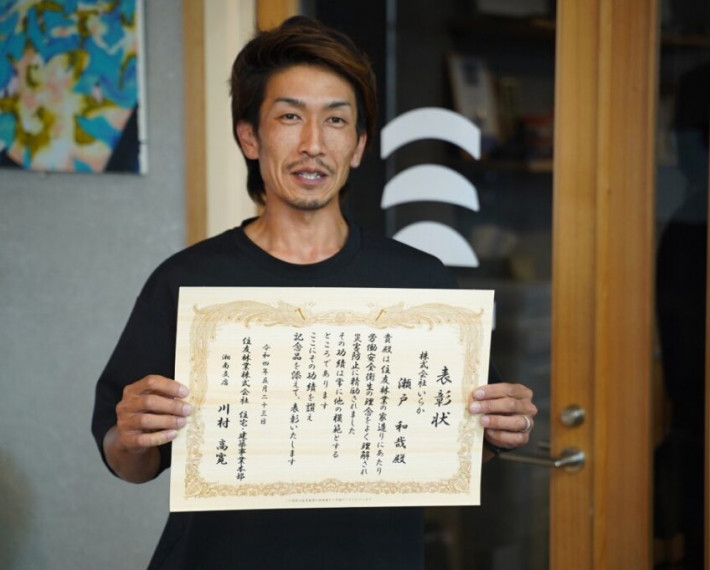 表彰状
株式会社いらか
瀬戸 和哉 殿
貴殿は住友林業の家造りにあたり
労働安全衛生の理念をよく理解され
災害防止に精励されました
その功績は常に他の模範とする
ところであります
ここにその功績を讃え
記念品を添えて、表彰いたします
令和四年五月二十三日
住友林業株式会社 住宅・建築事業本部
湘南支店
川村 高寛